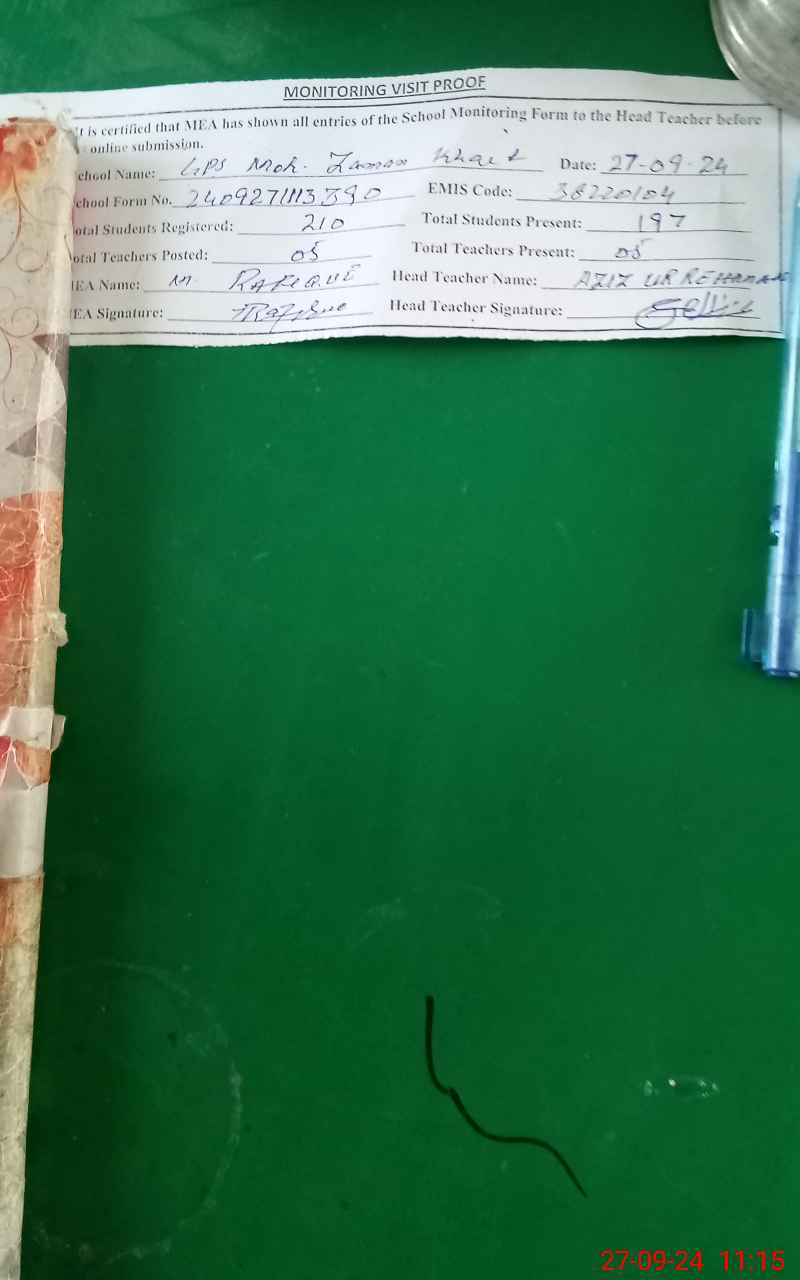 MONITORING VISIT PROOF
It is certified that MEA has shown all entries of the School Monitoring Form to the Head Teacher before
online submission.
chool Name: GPS Moh. Zaman Date: 27-09-24
chool Form No. EMIS Code: 38220104
otal Students Registered: 210 Total Students Present: 197
otal Teachers Posted: 05 Total Teachers Present: 05
EA Name: M. RAFIQUE Head Teacher Name: AZIZ UR REHMAN
EA Signature: Head Teacher Signature:
27-09-24 11:15